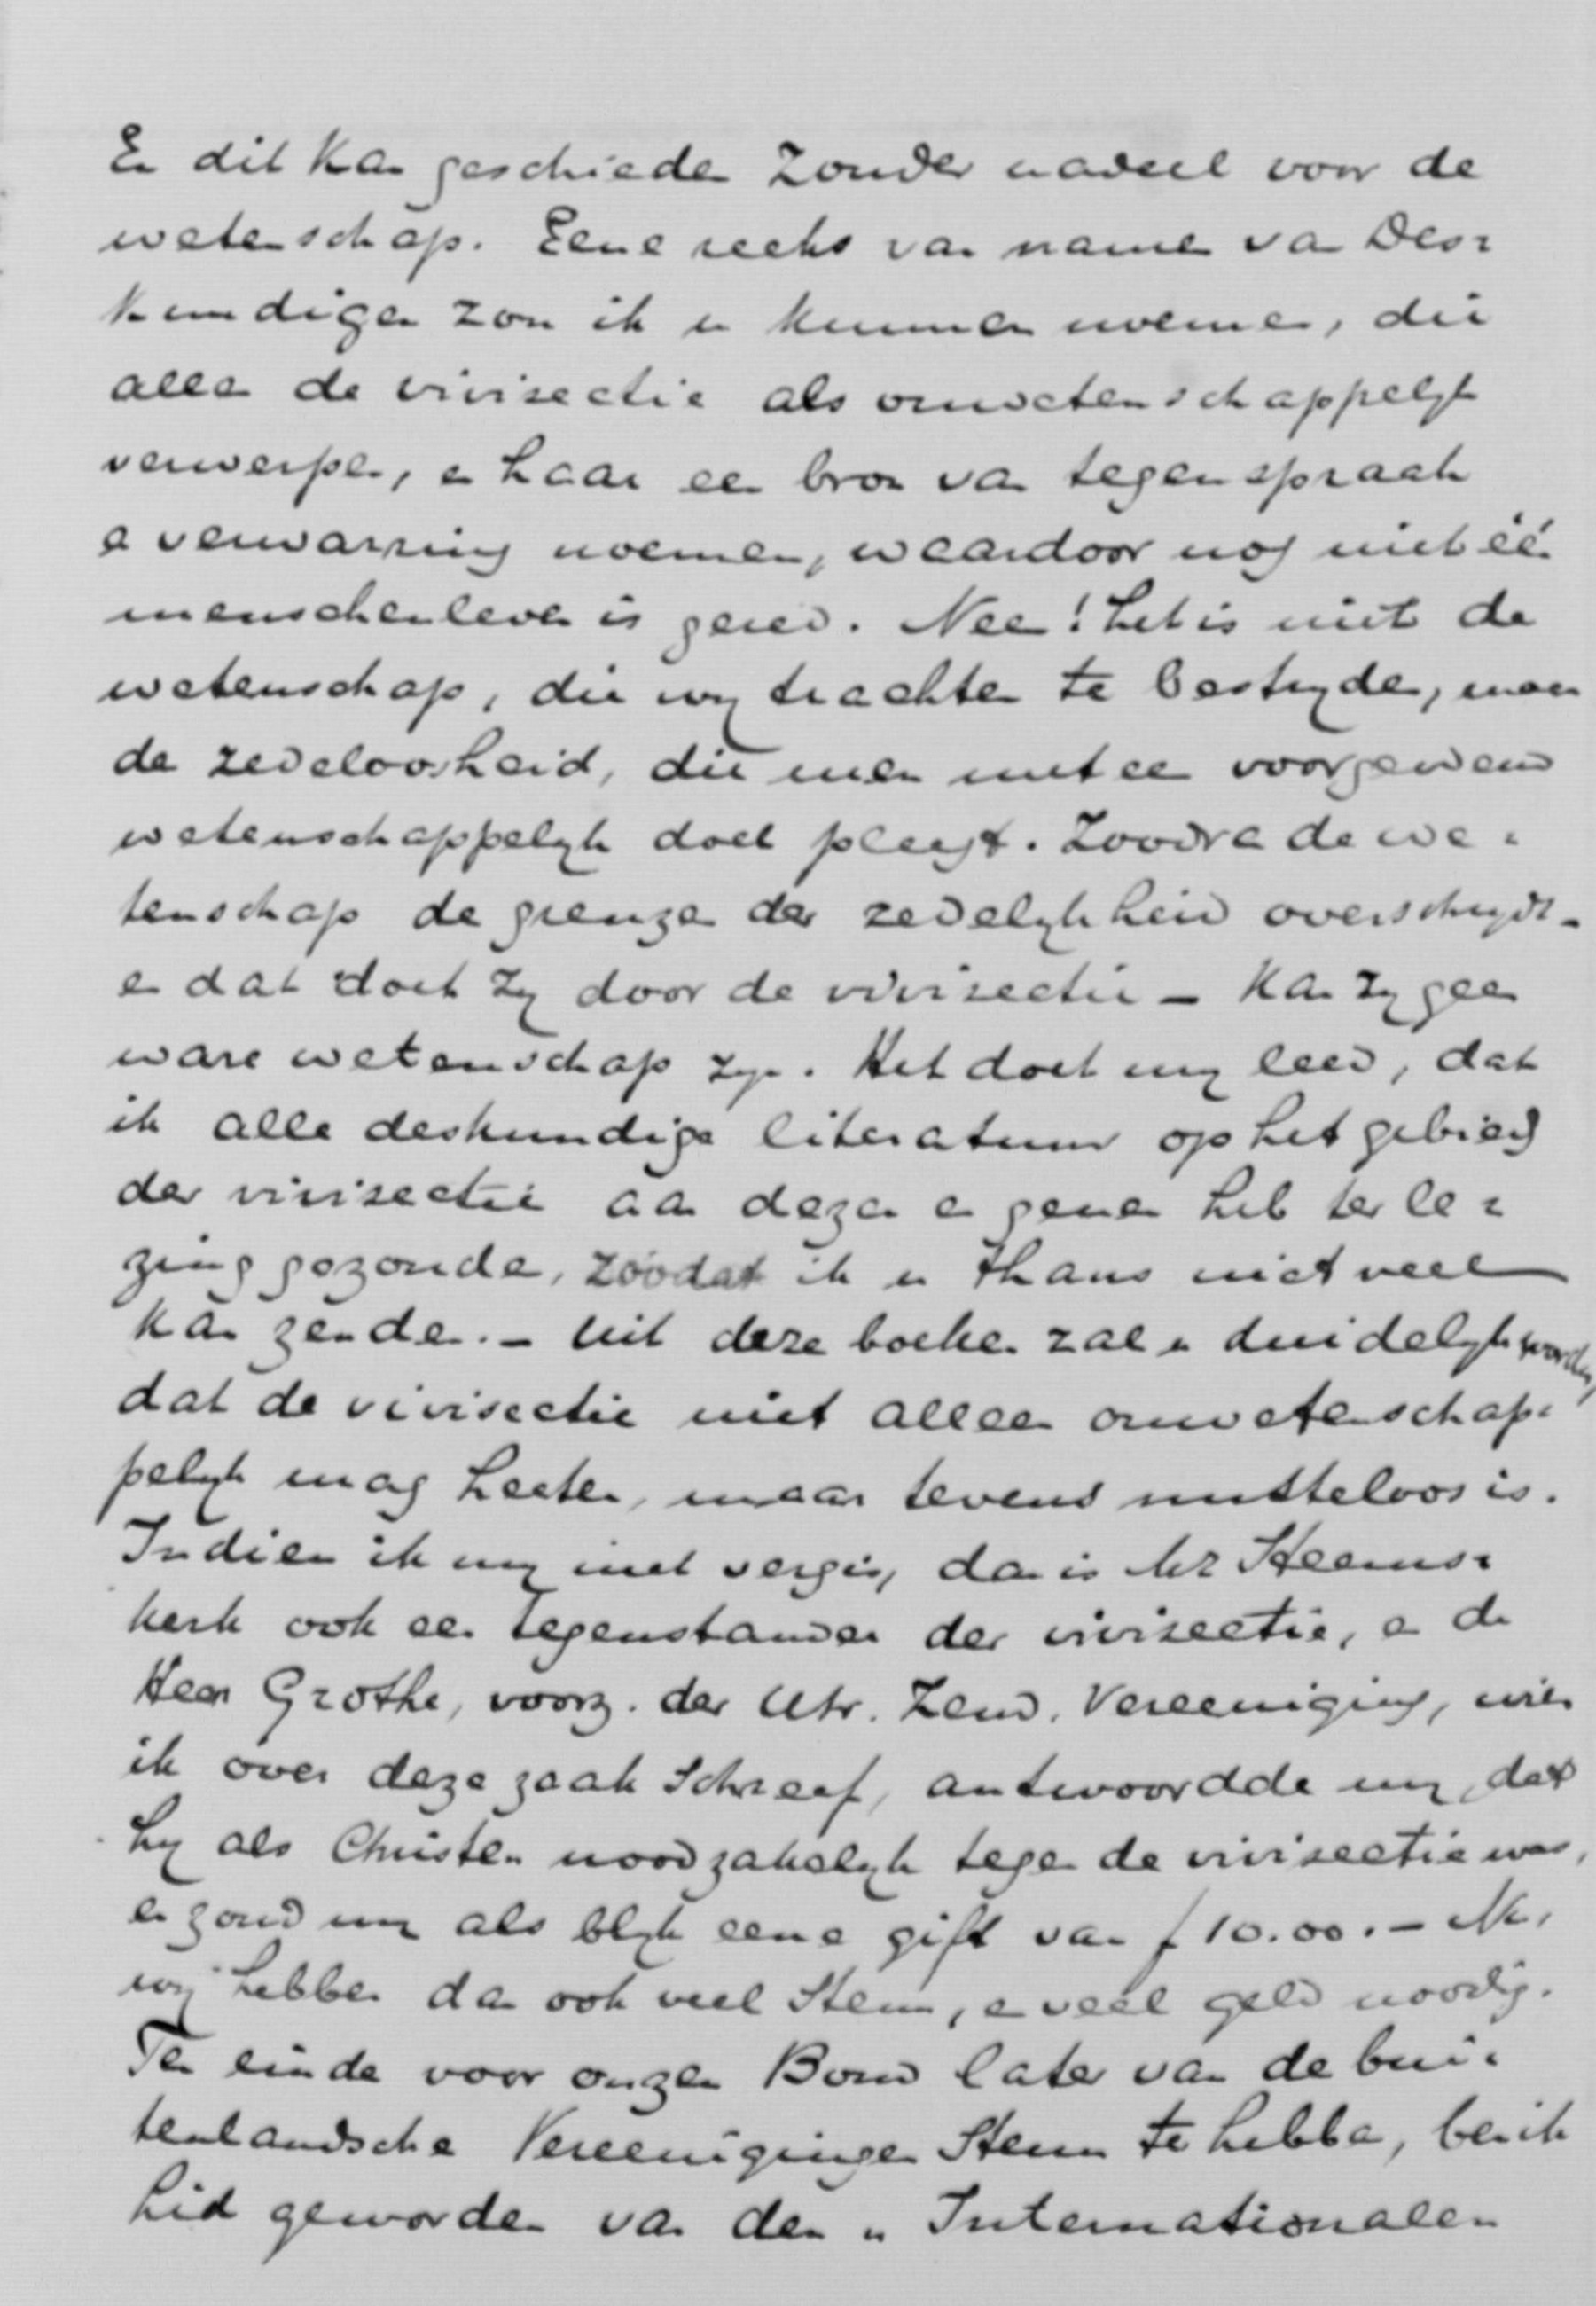 En dit kan geschieden zonder nadeel voor de
wetenschap. Eene reeks van namen van Des=
kundigen zou ik u kunnen noemen, die
allen de vivisectie als onwetenschappelijk
verwerpen, en haar een bron van tegenspraak
en verwarring noemen, waardoor nog niet één
menschenleven is gered. Neen! het is niet de
wetenschap, die wij trachten te bestrijden, maar
de zedeloosheid, die men met een voorgewend
wetenschappelijk doel pleegt. Zoodra de we=
tenschap de grenzen der zedelijkheid overschrijdt -
en dat doet zij door de vivisectie - kan zij geen
ware wetenschap zijn. Het doet mij leed, dat
ik alle deskundige literatuur op het gebied
der vivisectie aan dezen en genen heb ter le=
zing gezonden, zoodat ik u thans niet veel
kan zenden. - Uit deze boeken zal u duidelijk worden,
dat de vivisectie niet alleen onwetenschap=
pelijk mag heeten, maar tevens nutteloos is.
Indien ik mij niet vergis, dan is Mr Heems=
kerk ook een tegenstander der vivisectie, en de
Heer Grothe, voorz. der Utr. Zend. Vereeniging, wien
ik over deze zaak schreef, antwoordde mij, dat
hij als Christen noodzakelijk tegen de vivisectie was,
en zond mij als blijk eene gift van f 10.00. -
wij hebben dan ook veel steun, en veel geld noodig.
Ten einde voor onzen Bond later van de bui=
tenlandsche Vereenigingen steun te hebben, ben ik
lid geworden van den „Internationalen